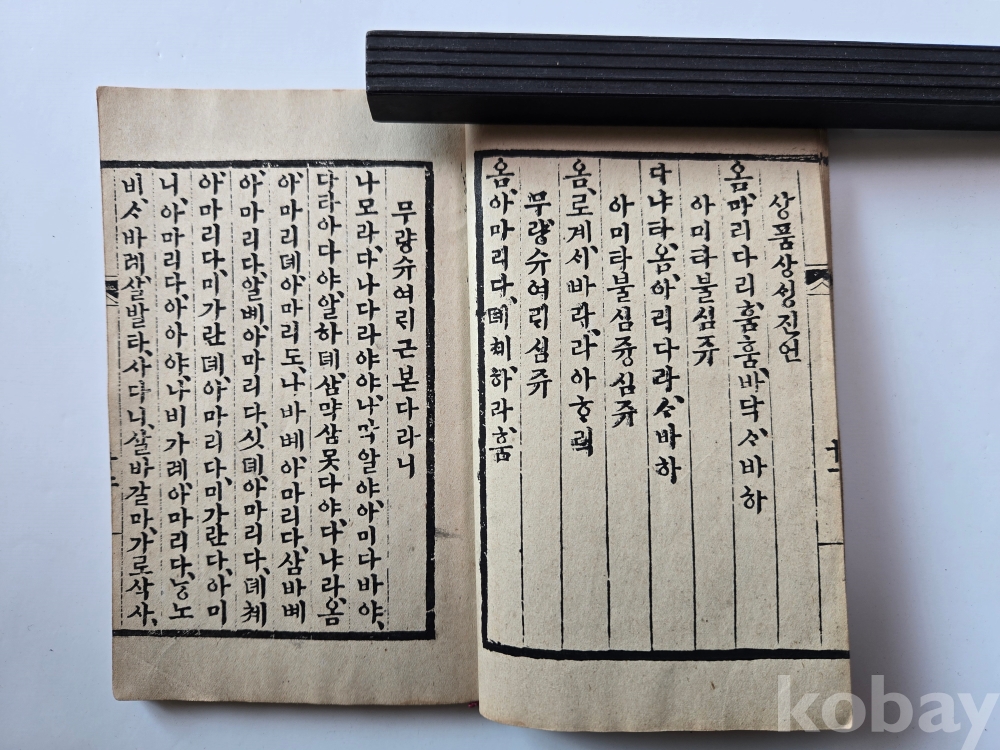 상품상성진언
옴、마리다리훔훔、바닥스바하
아미타불심쥬
다냐타、옴、아리다라、스바하
아미타불심즁심쥬
옴、로계、세바라、라아
무량슈여릐심쥬
옴、아마리다、뎨체、하라훔
十一
무량슈여릐근본다라니
나모라、다나다라야야、나막알야、아미다바야、
다타아다야、알하뎨、삼먁삼못다야、다냐라、옴
아마리뎨、아마리도、나바볘、아마리다、삼바볘
아마리다、알볘、아마리다、싯뎨、아마리다、뎨체
아마리다、미가란뎨、아마리다、미가란다、아미
니、아마리다、아아야、나비가례、아마리다、능노
비、스바례、살발타、사다니、살바갈마、가로삭사、
kobay